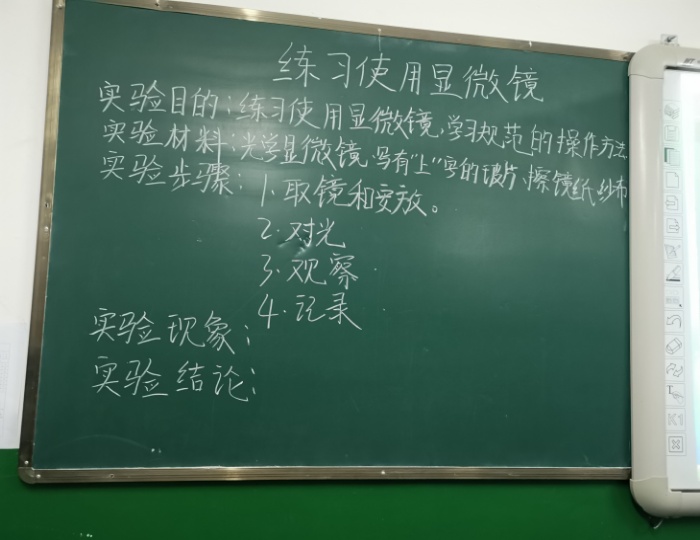 练习使用显微镜
实验目的:练习使用显微镜,学习规范的操作方法
实验材料:光学显微镜、写有"上"字的玻片、擦镜纸、纱布
实验步骤:1.取镜和安放。
2.对光
3.观察
4.记录
实验现象:
实验结论:
K1